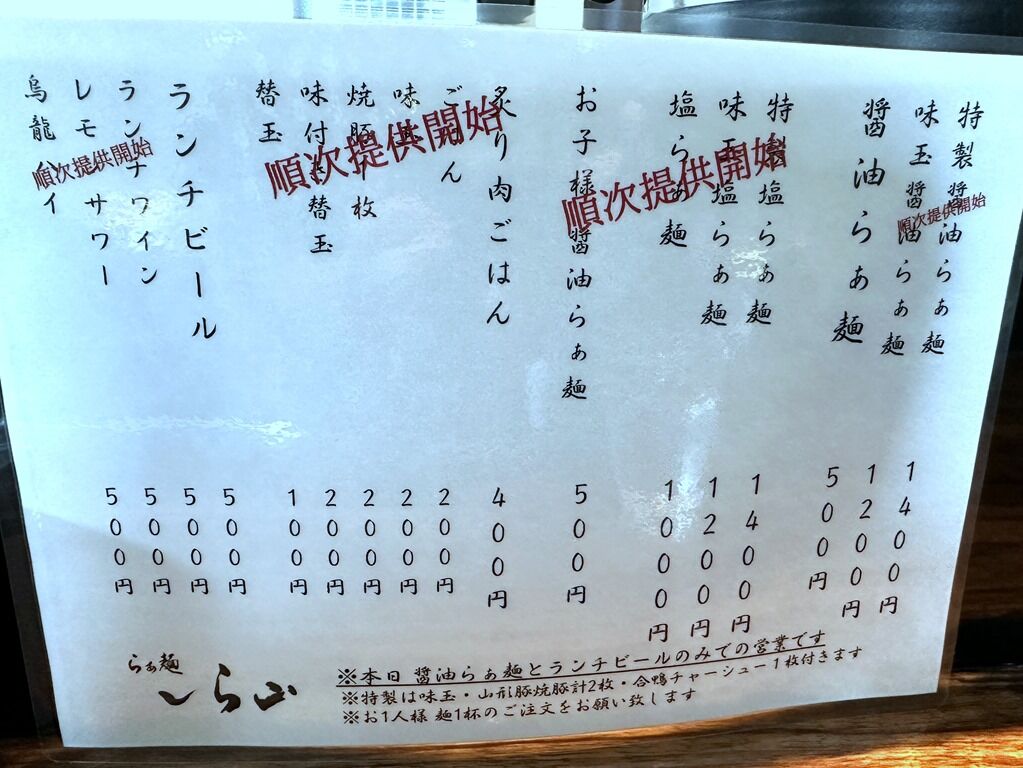 特製醤油らぁ麺 1400円
味玉醤油らぁ麺 1200円
醤油らぁ麺 500円
順次提供開始
特製塩らぁ麺 1400円
味玉塩らぁ麺 1200円
塩らぁ麺 1000円
順次提供開始
お子様醤油らぁ麺 500円
炙り肉ごはん 400円
ごはん 200円
味玉 200円
焼豚 枚 200円
味付き替玉 200円
替玉 100円
順次提供開始
ランチビール 500円
ランチワイン 500円
レモンサワー 500円
烏龍ハイ 500円
順次提供開始
※本日 醤油らぁ麺とランチビールのみでの営業です
※特製は味玉・山形豚焼豚計2枚・合鴨チャーシュー1枚付きます
※お1人様 麺1杯のご注文をお願い致します
らぁ麺